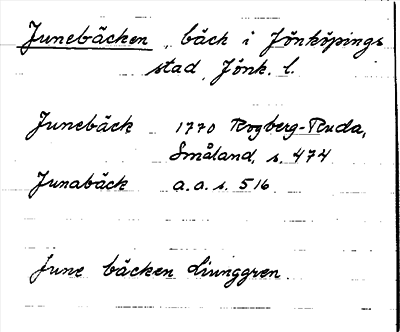 Junebäcken, bäck i Jönköpings
stad, Jönk. l.
Junebäck 1770 Rogberg-Ruda,
Småland, s. 474
Junabäck a.a. s. 516
June bäcken Liunggren.